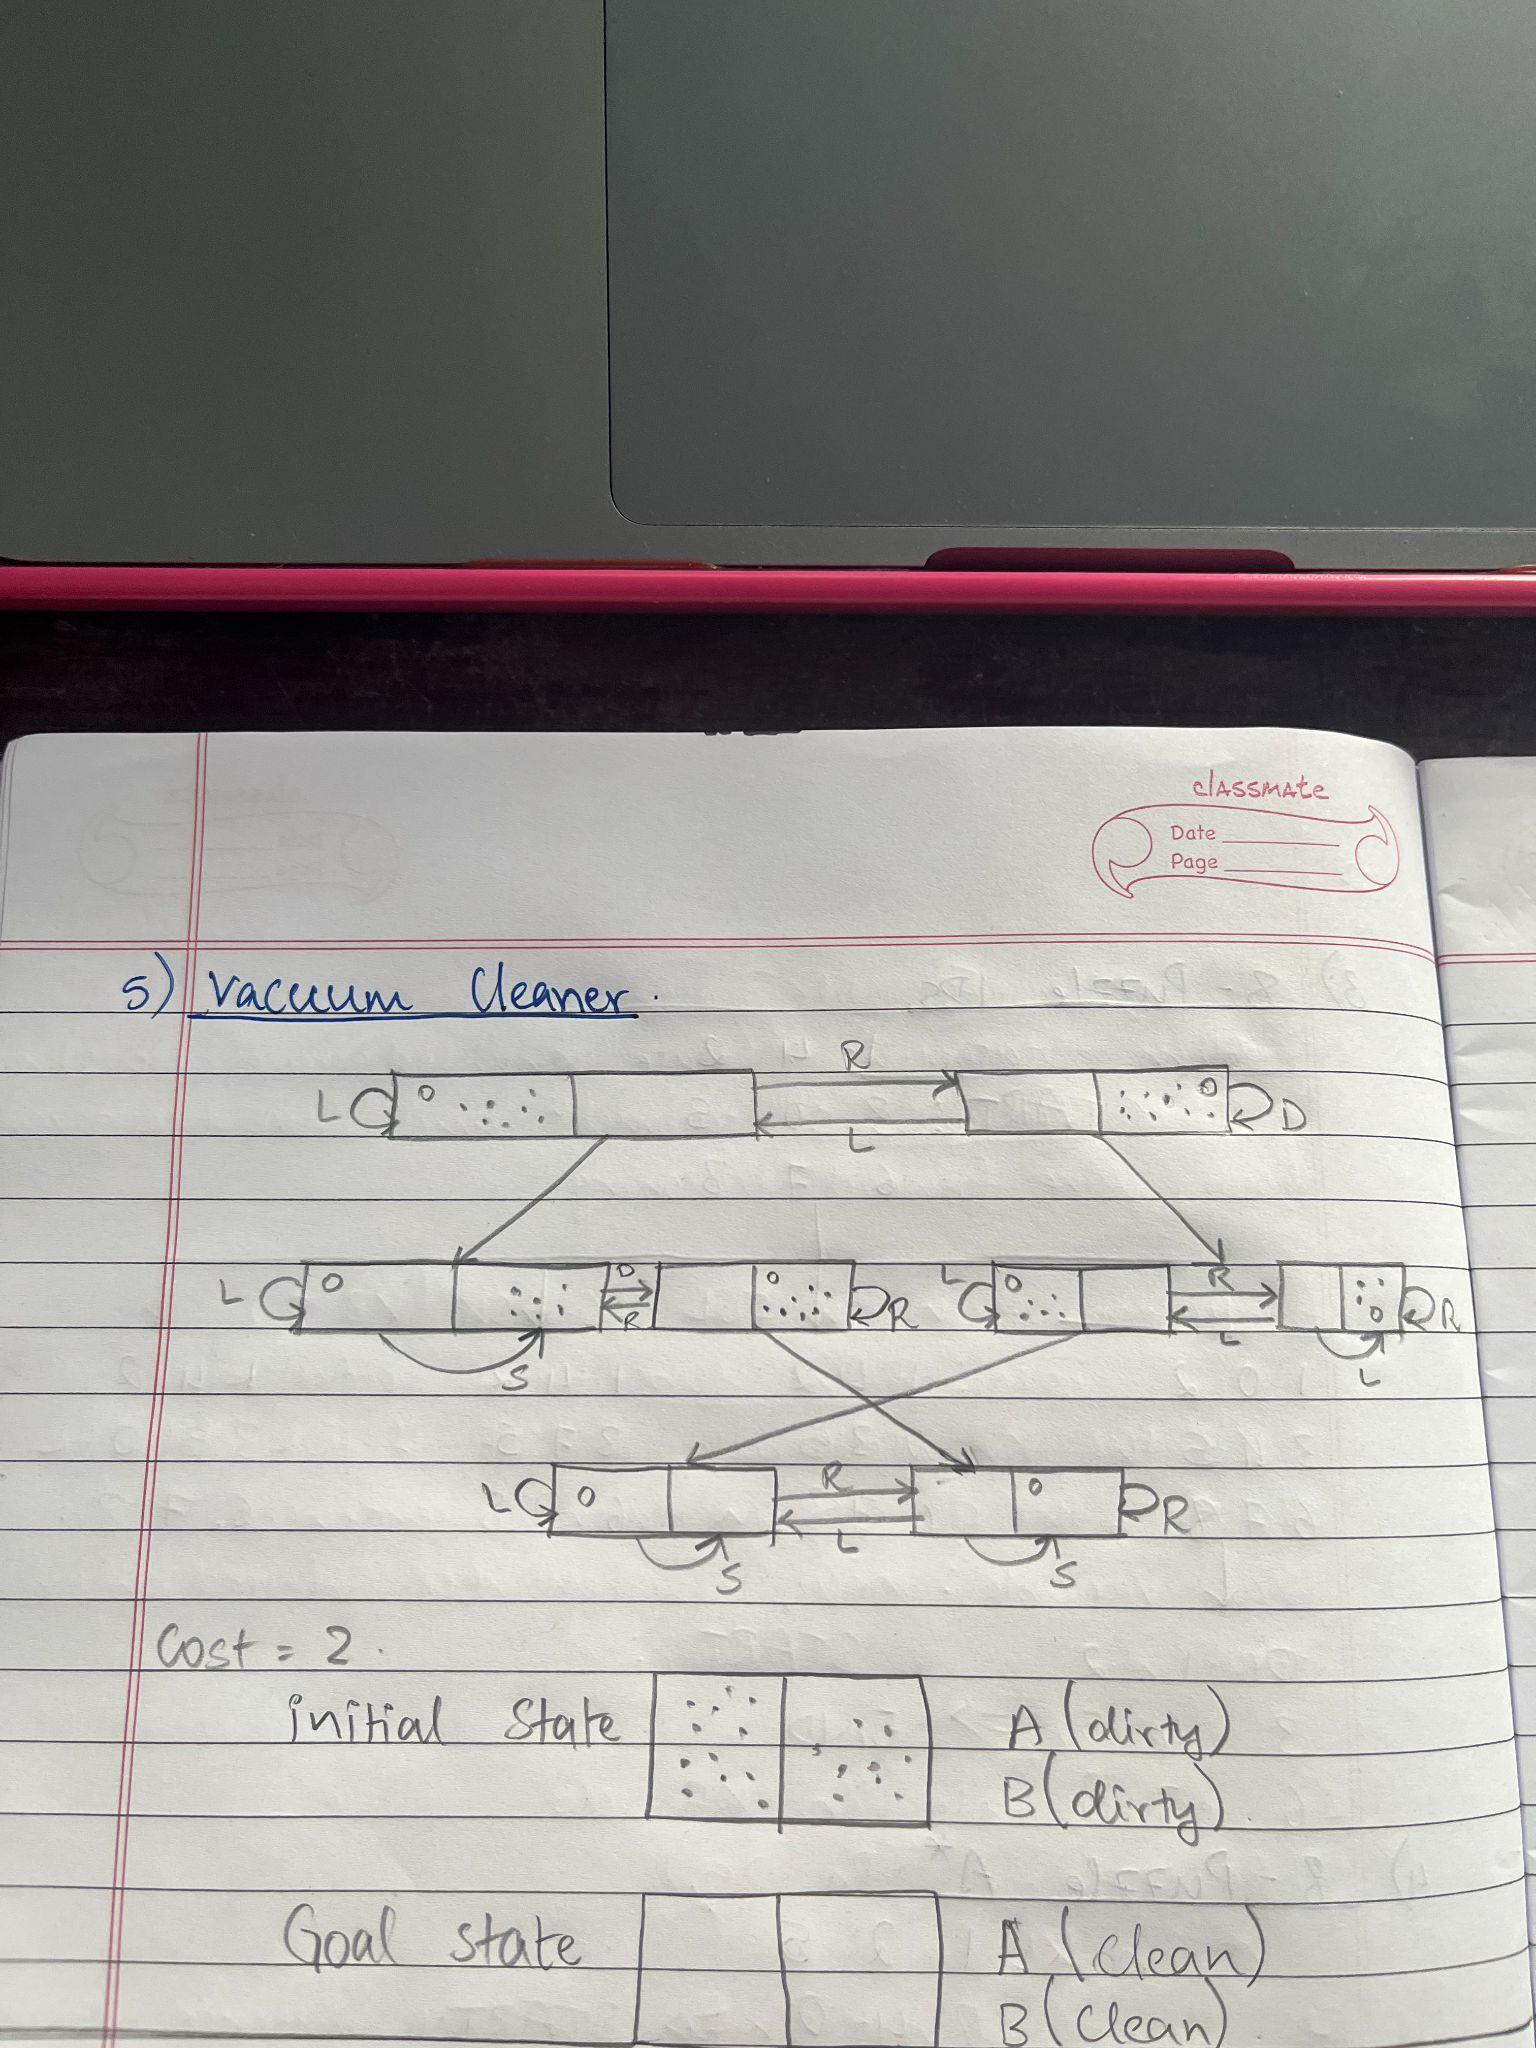 classmate
Date
Page
5) Vacuum Cleaner.
R
L
D
L
L
D
R
R
L
R
L
R
S
L
L
R
L
R
S
S
Cost = 2.
initial state
A (dirty)
B (dirty).
Goal state
A (clean)
B (clean)